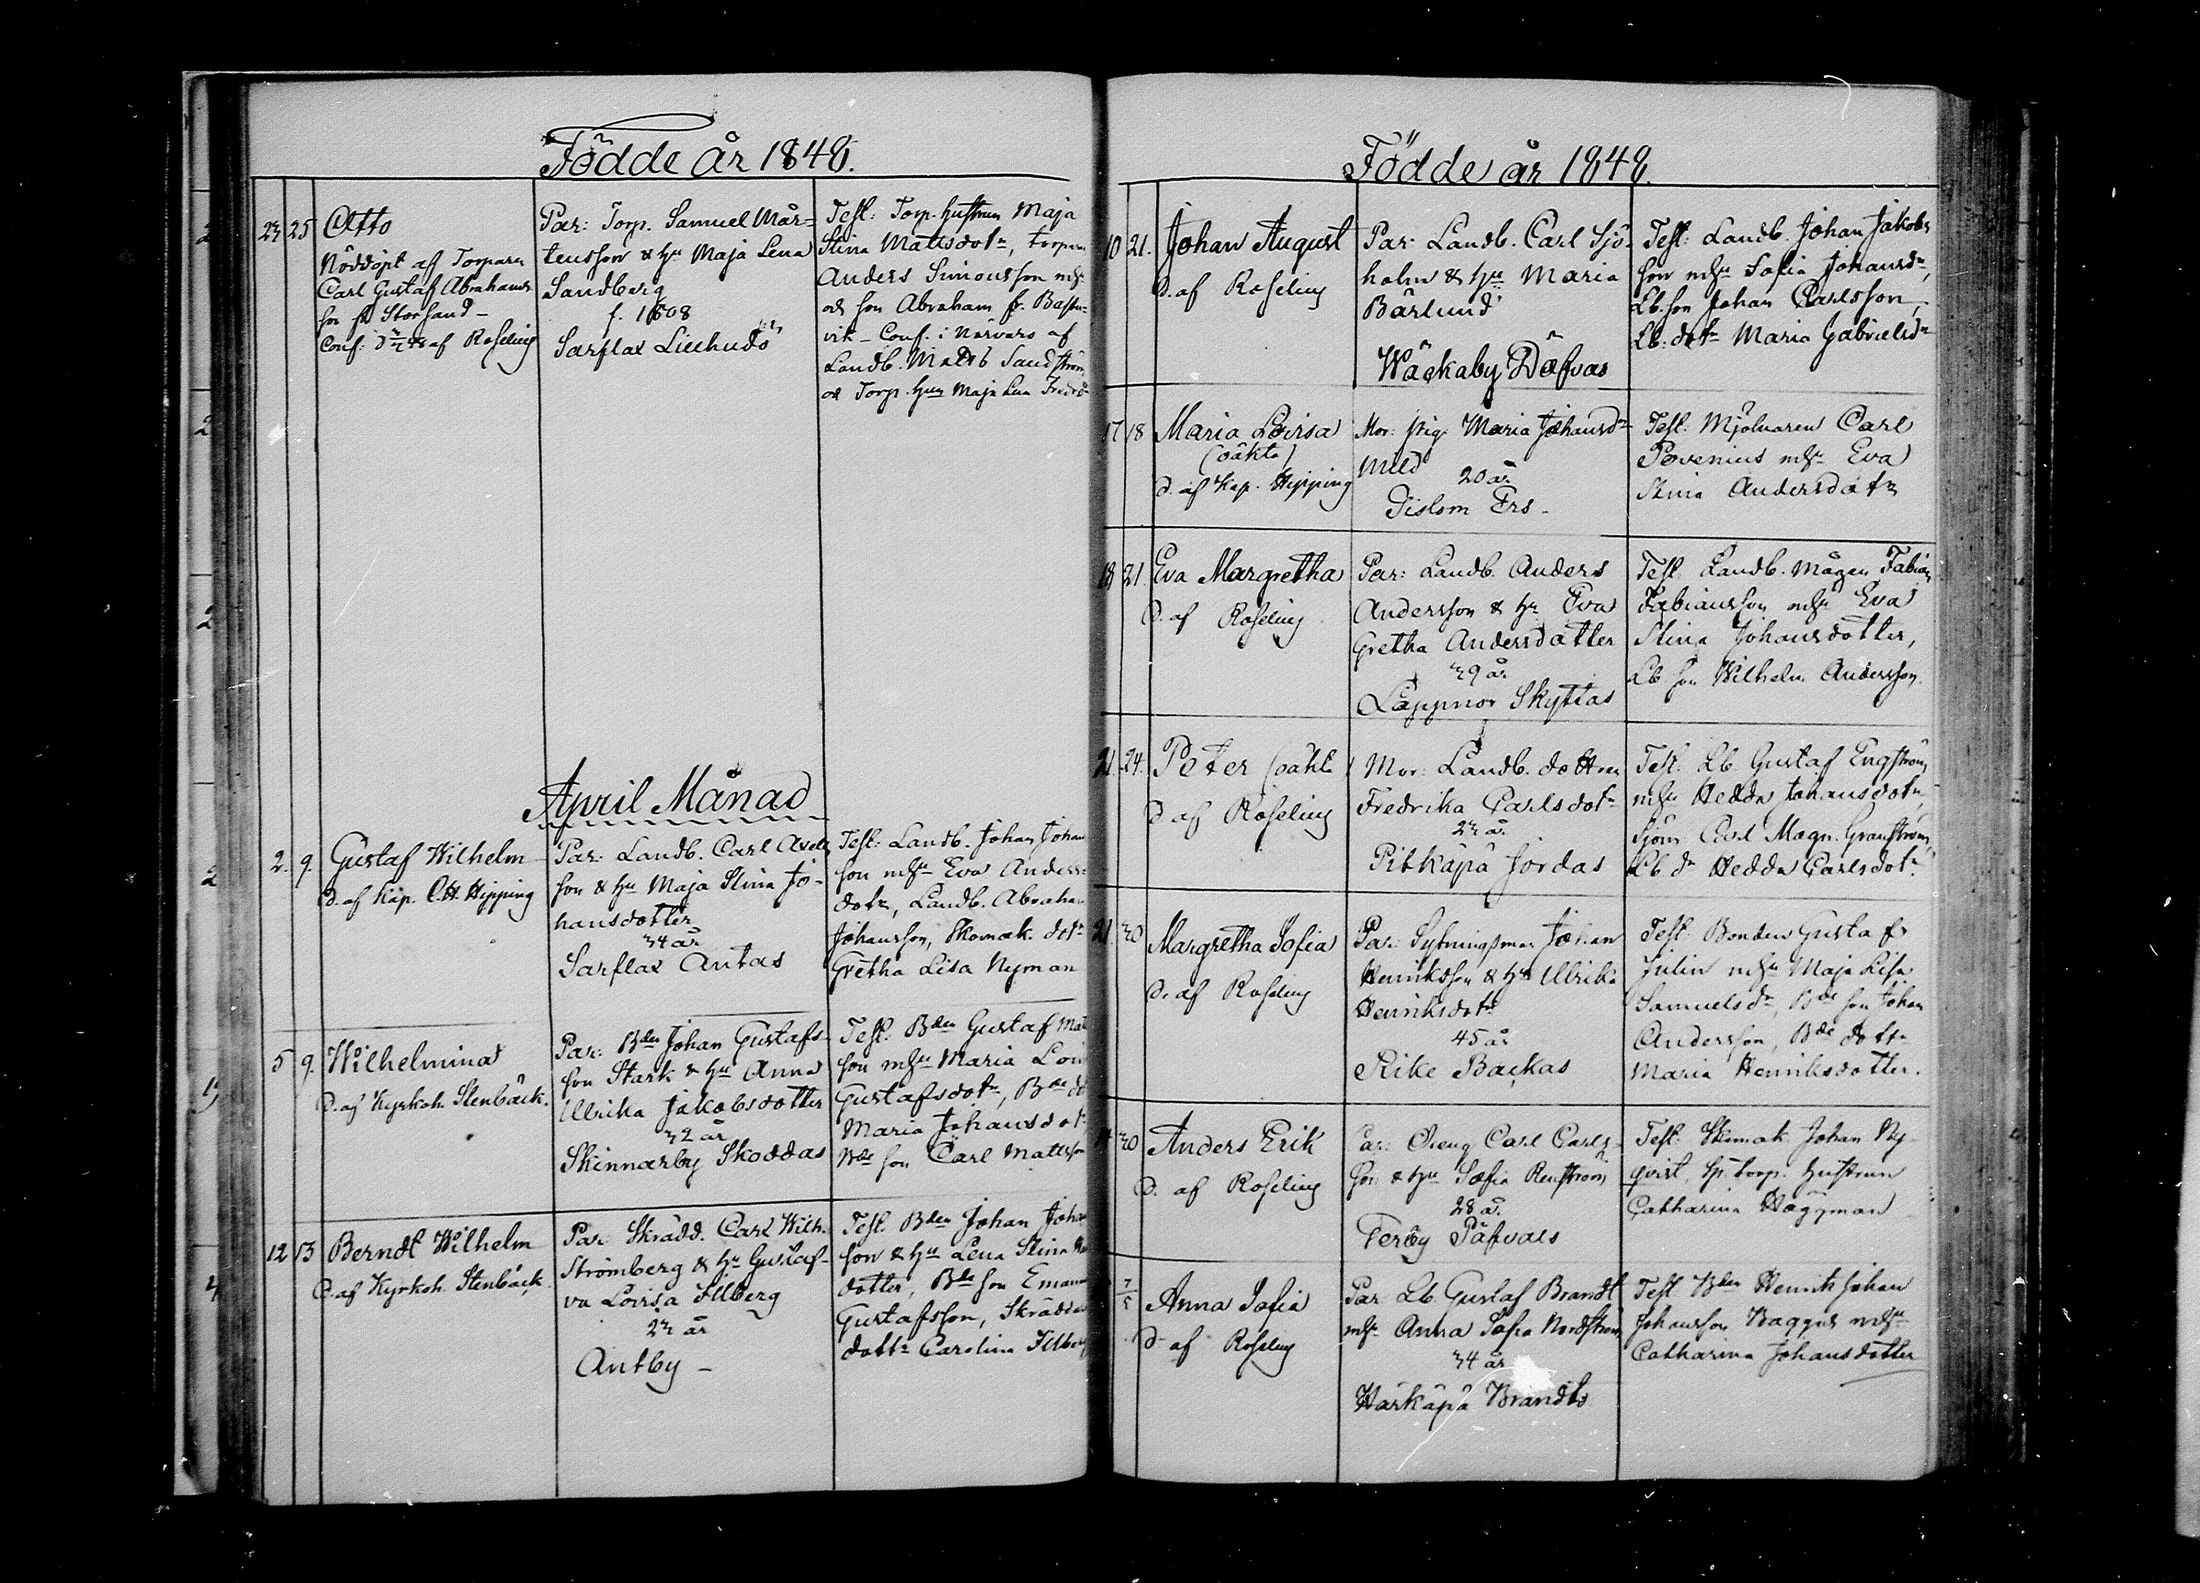 Födde år 1848.
23 25 Otto
Nöddöpt af Torparn
Carl Gustaf Abrahams
son fr Storsand
Conf. af Roseling
Par: Torp. Samuel Mår-
tensson & hu Maja Lena
Sandberg
f. 1808
Sarflax Lillhudö
Test: Torp. hustrun Maja
Stina Mattsdotr, torparn
Anders Simonsson mhu
och son Abraham fr. Basten-
vik - Conf. i närvaro af
Landb. Matts Sandström
och Torp. hun Maja Lena Fredrd
April Månad
2. 9. Gustaf Wilhelm
D. af Kap. C.H. Hipping
Par: Landb. Carl Axels
son & hu Maja Stina Jo-
hansdotter
34 år
Sarflax Antas
Test: Landb. Johan Johan
son mhu Eva Anders
dotr, Landb. Abraham
Johansson, Skomak. dotr
Gretha Lisa Nyman
5 9. Wilhelmina
D. af Kyrkoh. Stenbäck.
Par: Bden Johan Gustafs-
son Stark & hu Anna
Ullrika Jakobsdotter
32 år
Skinnarby Skoddas
Test. Bden Gustaf Mat
son mhu Maria Lovi
Gustafsdotr, Bde do
Maria Johansdotr
Bde son Carl Mattsson
12 13 Berndt Wilhelm
D. af Kyrkoh. Stenbäck.
Par Skrädd. Carl Wilh.
Strömberg & hu Gustaf-
va Lovisa Illberg
23 år
Antby -
Test. Bden Johan Johan
son & hu Lena Stina
dotter, Bde son Emanu
Gustafsson, Skrädda
dottr Carolina Illberg
Födde år 1848.
10 21. Johan August
D. af Roseling
Par: Landb. Carl Sjö-
holm & hu Maria
Bärlund
Wäckaby Däfvas
Test: Landb. Johan Jakobs
son mhu Sofia Johansdr,
Lb. son Johan Carlsson,
Lb: dotr Maria Gabrielsdr
17 18 Maria Lovisa
(oäkta)
D. af Kap. Hipping
Mor: pig. Maria Johansdr
Mild
20 år
Gislom Ers -
Test: Mjölnaren Carl
Povenius mhu Eva
Stina Andersdotr
18 21. Eva Margretha
D. af Roseling
Par: Landb. Anders
Andersson & hu Eva
Gretha Andersdotter
39 år
Lappnor Skyttas
Test. Landb. mågen Fabian
Fabiansson mhu Eva
Stina Johansdotter,
Lb son Wilhelm Andersson
21 24. Peter (oäkta
D af Roseling
Mor: Landb. dottren
Fredrika Carlsdotr
23 å.
Pitkäpä Jordas
Test: Lb Gustaf Engström
mhu Hedda Johansdotr,
Sjöm Carl Magn. Granström,
Lb dr Hedda Carlsdotr
21. 30 Margretha Sofia
D. af Roseling
Par: Sytningsman Johan
Henriksson & hu Ullrika
Henriksdotr
45 år
Rike Backas
Test. Bonden Gustaf
Julin mhu Maja Lisa
Samuelsdr, Bde son Johan
Andersson, Bde dottr
Maria Henriksdotter.
30 Anders Erik
D. af Roseling
Par: Dreng Carl Carls-
son & hu Sofia Renström
28 å.
Terby Päfvals
Test: Skomak. Johan Ny-
qvist, Sp. torp. hustrun
Catharina Häggman
7/5 Anna Sofia
D af Roseling
Par Lb. Gustaf Brandt
mhu Anna Sofia Nordström
34 år
Härkäpä Brandts
Test Bden Henrik Johan
Johansson Baggus mhu
Catharina Johansdotter